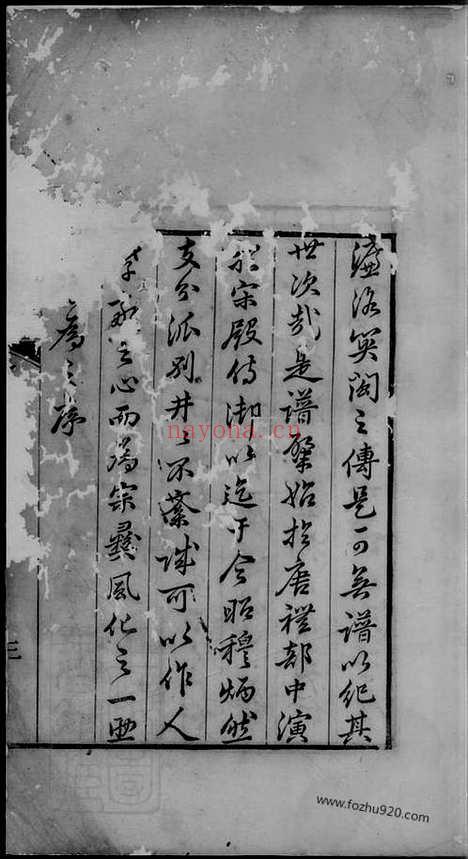 濂洛关閩之傳是可無譜以紀其
世次哉是譜肇始於唐禮部中演
於宋殿侍御以迄于今昭穆炳然
支分派别井井不紊誠可以作人
孝敬之心而為宗彝風化之一
為之序
三
nayona.cn
www.fozhu920.com